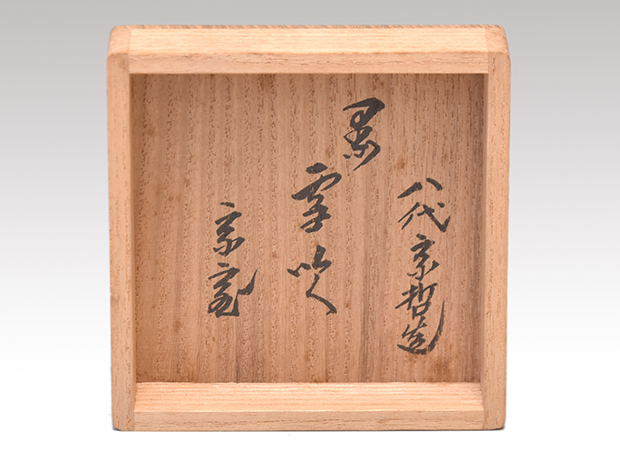 八代宗哲造
黒
雪吹
宗室